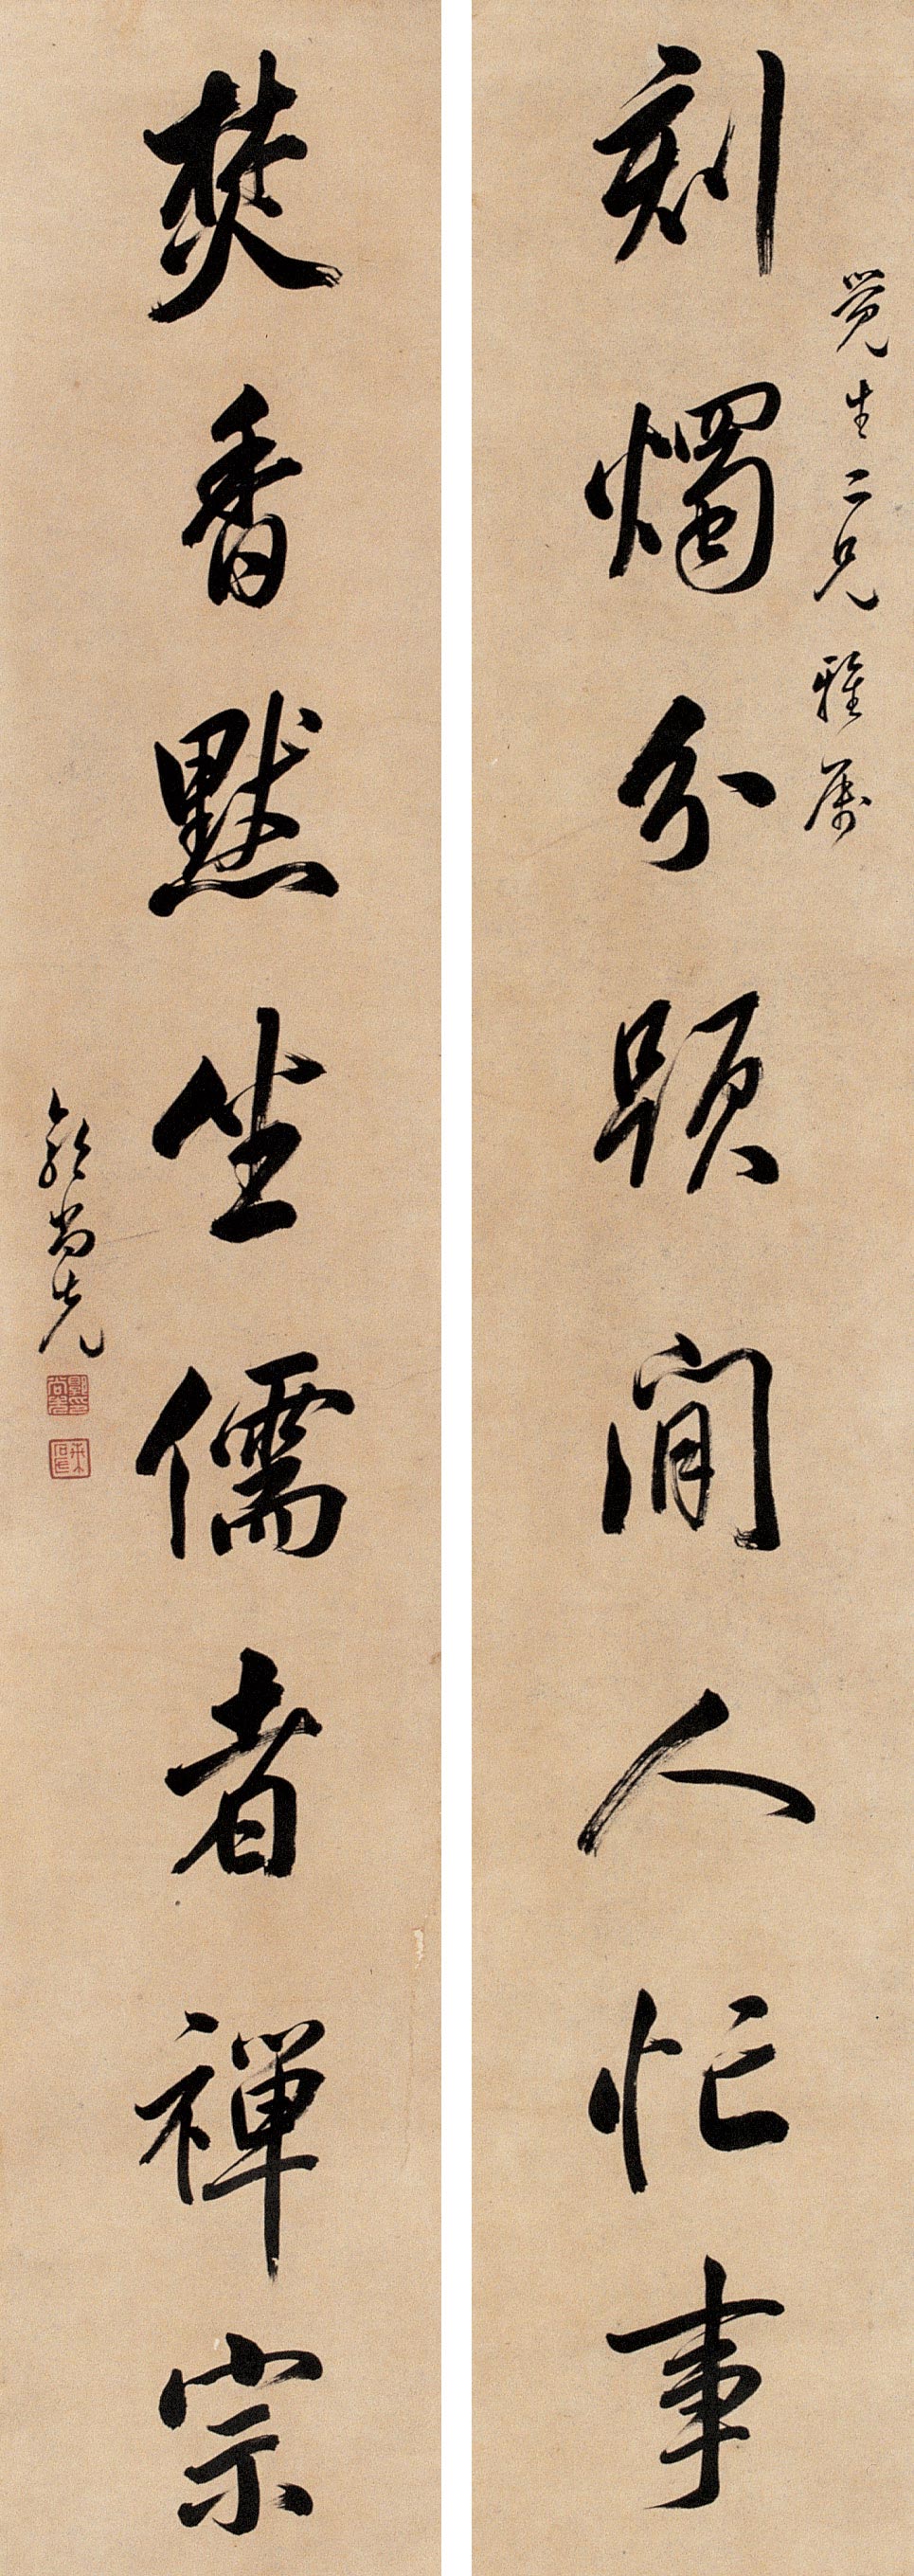 覺生二兄雅属
刻燭分題閒人忙事
焚香默坐儒者禪宗
郭尚先